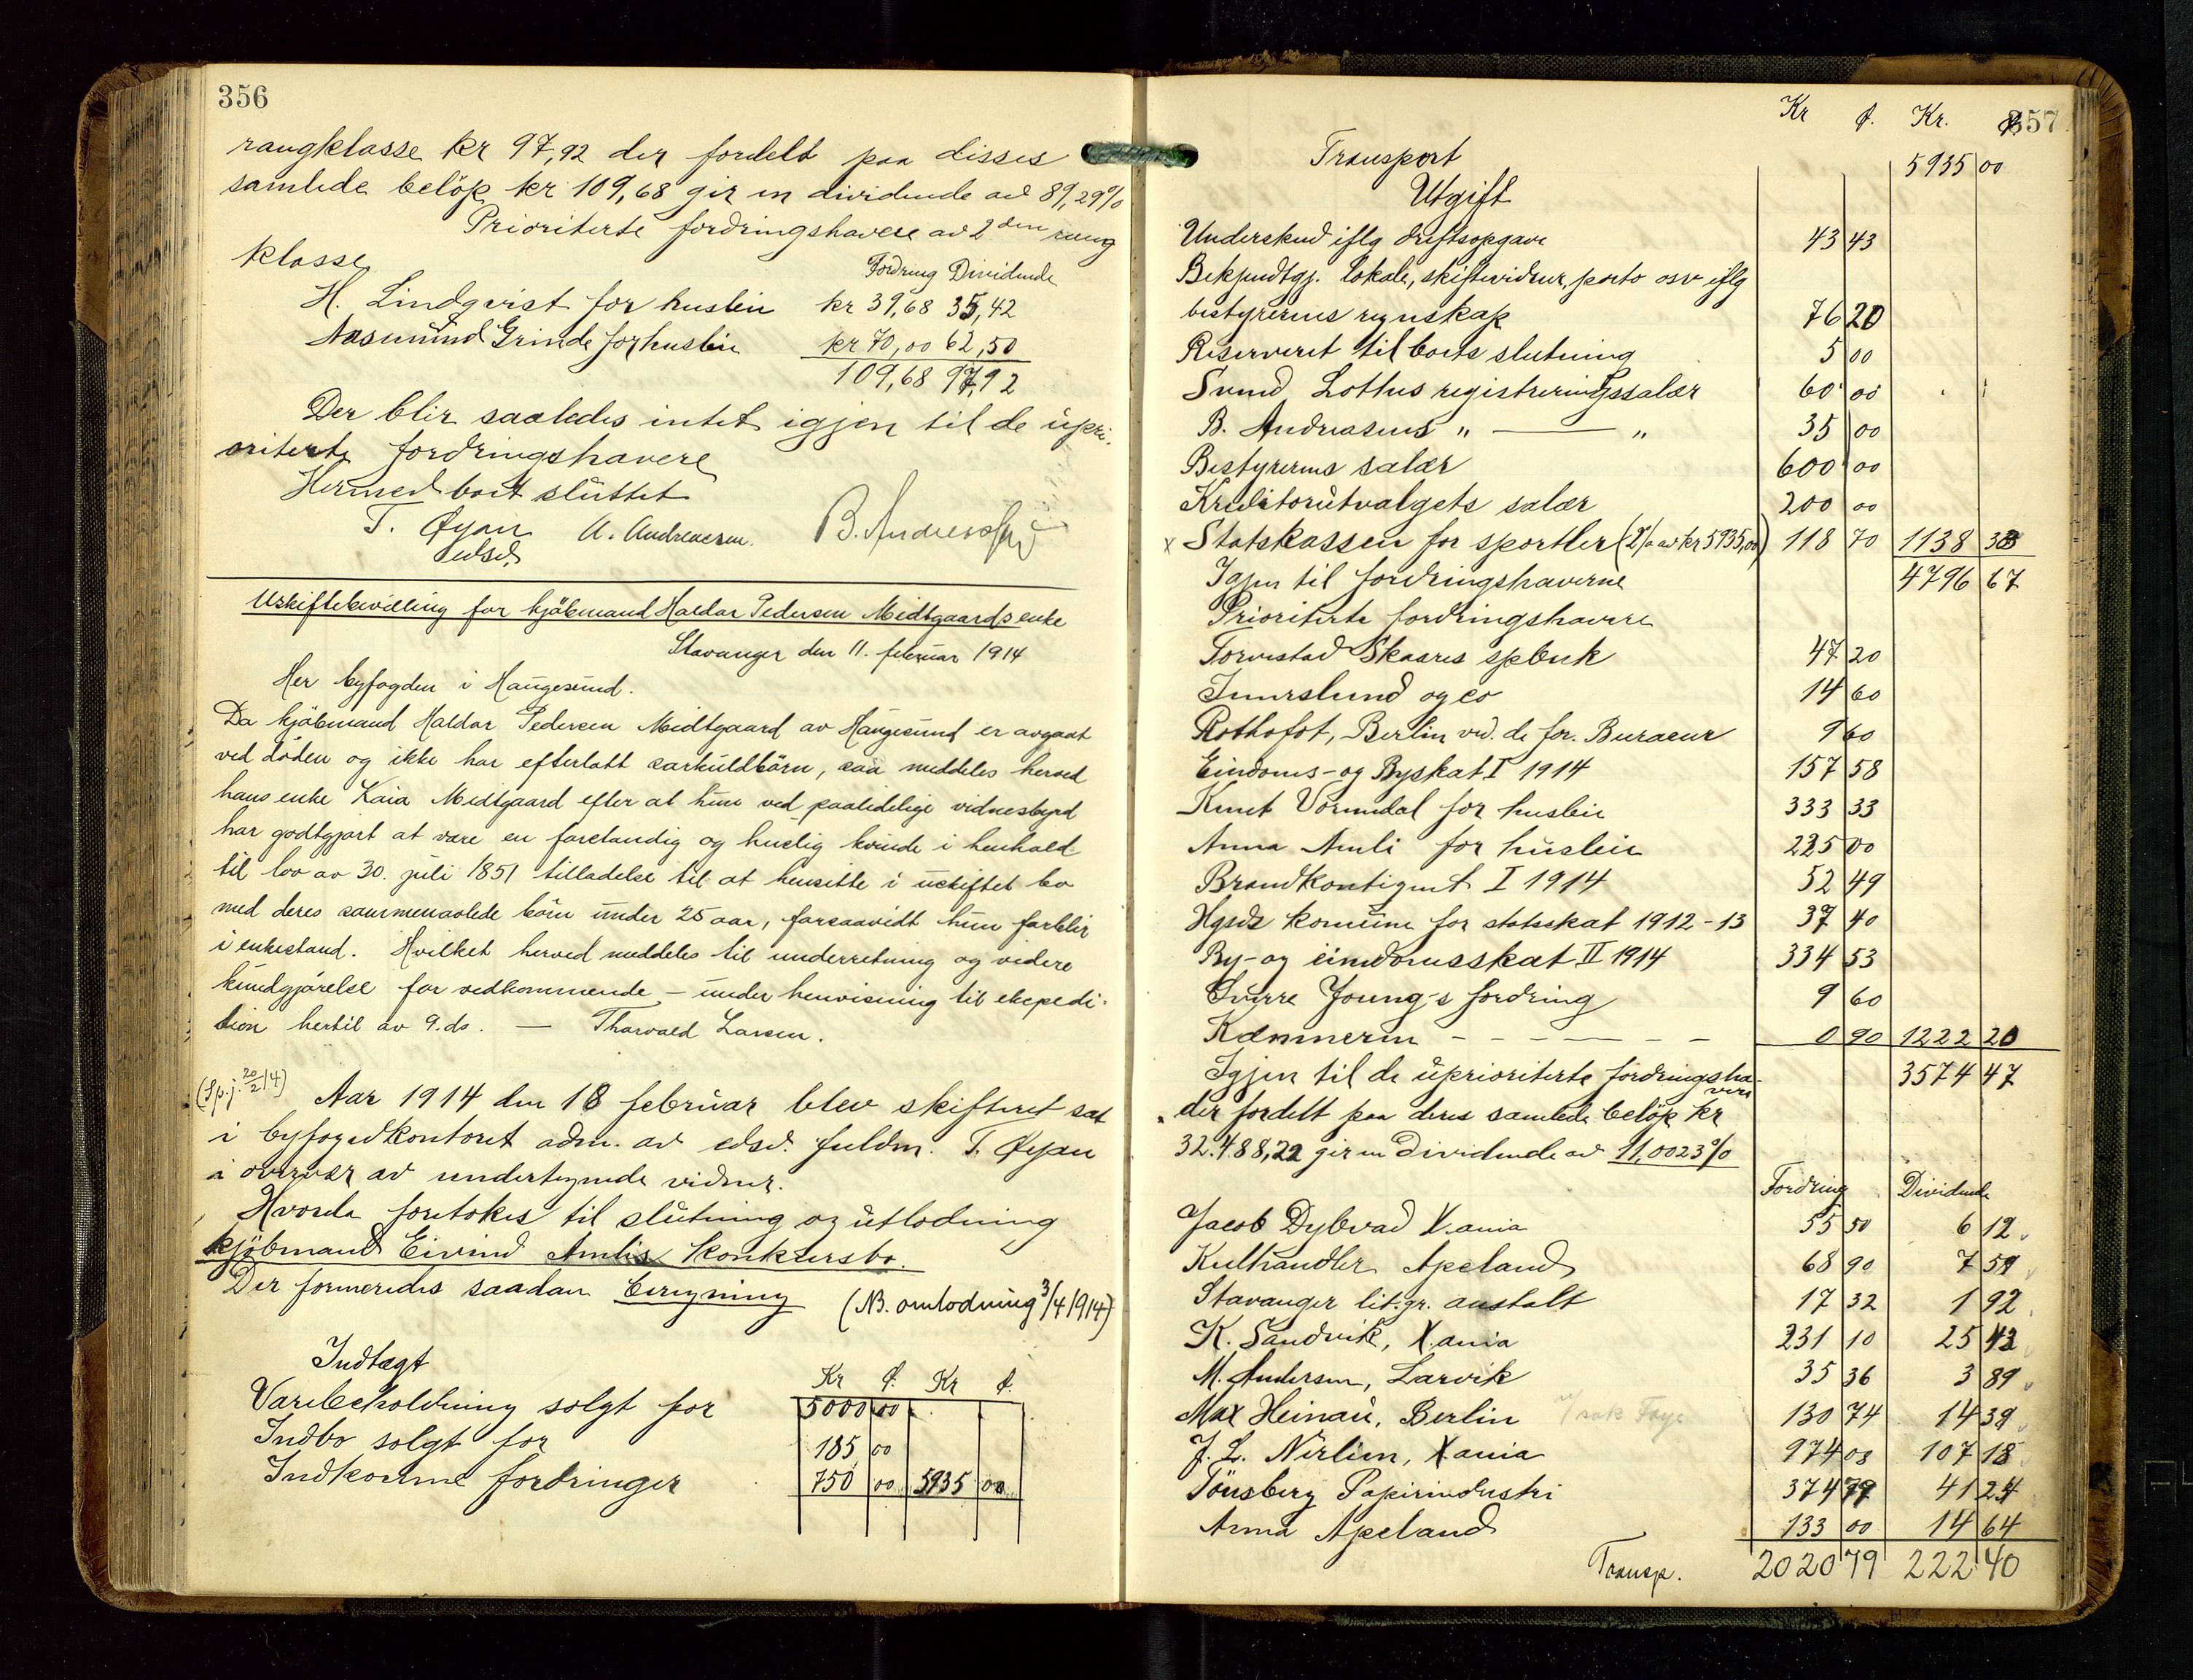 356
rangklasse kr 97,92 der fordelt paa disses
samlede belöp kr 109,68 gir en dividende av 89,29%
Prioriterte fordringshavere av 2den rang
klasse
Fordring Dividende
H. Lindqvist for husleie kr 39,68 35,42
Aasmund Grinde for husleie kr 70,00 62,50
109,68 97,92
Der blir saaledes intet igjen til de upri-
oriterte fordringshavere
Hermed boet sluttet
T. Øyan A. Andreassen. B. Andreassen
edsv.
Uskiftebevilling for kjöbmand Haldor Pedersen Midtgaards enke
Stavanger den 11. februar 1914
Her byfogden i Haugesund.
Da kjöbmand Haldor Pedersen Midtgaard av Haugesund er avgaat
ved döden og ikke har efterlatt særkuldbörn, saa meddeles herved
hans enke Kaia Midtgaard efter at hun ved paalidelige vidnesbyrd
har godtgjort at være en forstandig og huslig kvinde i henhold
til lov av 30. juli 1851 tilladelse til at hensitte i uskiftet bo
med deres sammenavlede börn under 25 aar, forsaavidt hun forblir
i enkestand. Hvilket herved meddeles til underretning og videre
kundgjörelse for vedkommende – under henvisning til ekspedi-
tion hertil av 9. ds. — Thorvald Larsen.
(Sp.j. 20/2 14) Aar 1914 den 18 februar blev skifteret sat
i byfogedkontoret adm. av edsv. fuldm. T. Øyan
i overvær av undertegnede vidner.
Hvorda foretokes til slutning og utlodning
kjöbmand Eivind Amlis konkursbo.
Der formeredes saadan beregning (NB. omlodning 3/4 1914)
Indtægt
Kr ø. Kr ø.
Varebeholdning solgt for 5000 00
Indbo solgt for 185 00
Indkomne fordringer 750 00 5935 00
357
Kr ø. Kr. ø.
Transport 5935 00
Utgift
Underskud iflg driftsopgave 43 43
Bekjendtgj. lokale, skiftevidner, porto osv iflg
bestyrerens regnskap 76 20
Reserveret til boets slutning 5 00
Svend Lothes registreringssalær 60 00
B. Andreasens " — " 35 00
Bestyrerens salær 600 00
Kreditorutvalgets salær 200 00
x Statskassen for sportler (2% av kr 5935,00) 118 70 1138 33
Igjen til fordringshaverne 4796 67
Prioriterte fordringshavere
Torvestad Skaares spbnk 47 20
Immerslund og co 14 60
Rothofot, Berlin ved. de for. Bureaur 9 60
Eindoms- og Byskat I 1914 157 58
Knut Vormedal for husleie 333 33
Anna Amli for husleie 225 00
Brandkontigent I 1914 52 49
Hgsds komune for statsskat 1912-13 37 40
By- og eindomsskat II 1914 334 53
Sverre Young's fordring 9 60
Kæmneren - - - — - - 0 90 1222 20
Igjen til de uprioriterte fordringsha-
vere 3574 47
der fordelt paa deres samlede belöp kr
32.488,22 gir en dividende av 11,0023%
Fordring Dividende
Jacob Dybvad X.ania 55 50 6 12
Kulhandler Apeland 68 90 7 59
Stavanger lit.gr. anstalt 17 32 1 92
K. Sandvik, X.ania 231 10 25 43
M. Andersen, Larvik 35 36 3 89
Max Heinau, Berlin 130 74 14 39
J. L. Nerlien, X.ania 974 08 107 18
Tönsberg Papirindustri 374 79 41 24
Anna Apeland 133 00 14 64
Transp. 2020 79 222 40